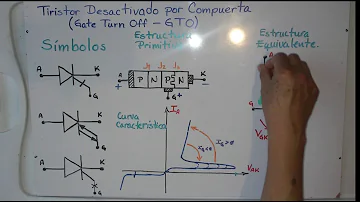 Tiristor Desactivado por Compuerta
(Gate Turn Off - GTO)
Símbolos
Estructura
Primitiva
Estructura
Equivalente
J₁ J₂ J₃
A K
A K
+ -
P N P N
G
G
A K
G
A K
G
Curva
Característica
I_A
I_G<0
I_G>0
V_AK
A
G
V_GK